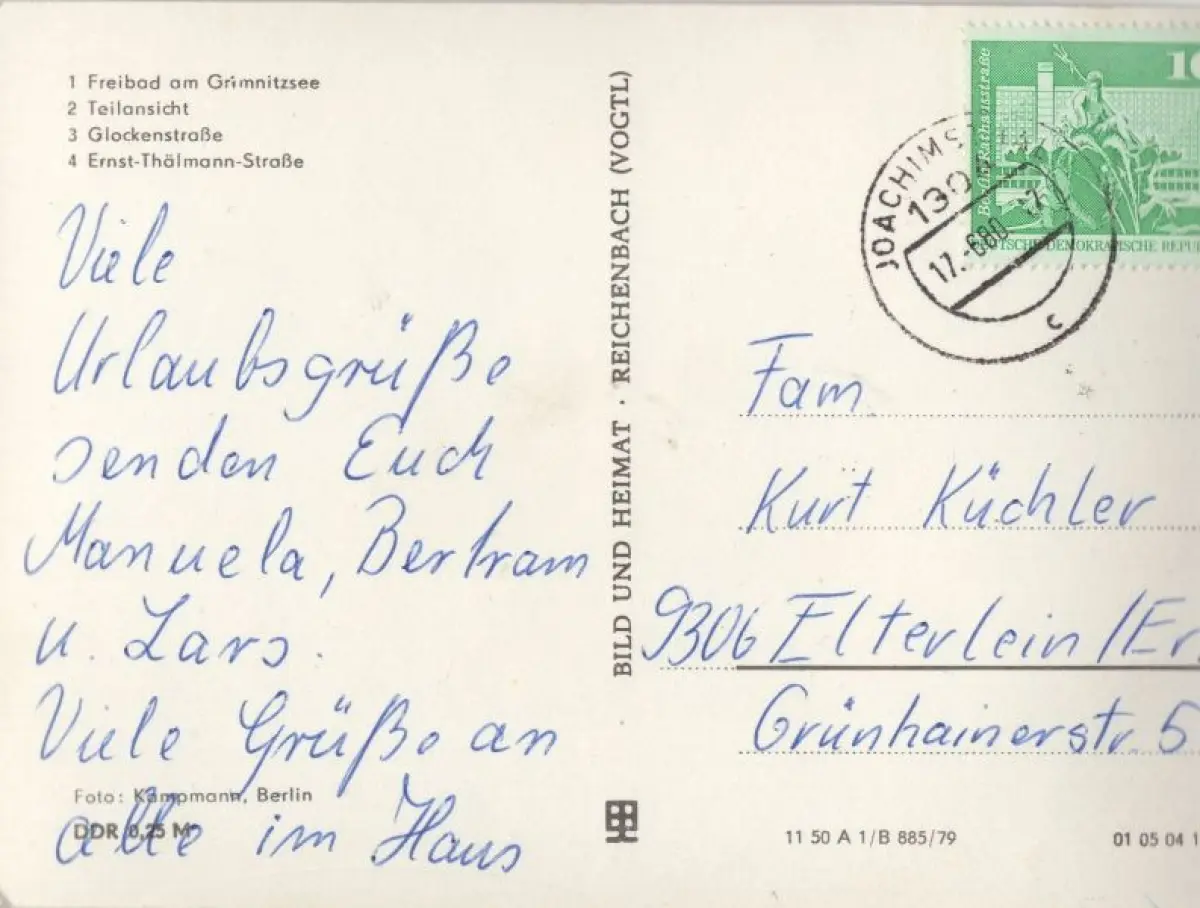 1 Freibad am Grimnitzsee
2 Teilansicht
3 Glockenstraße
4 Ernst-Thälmann-Straße
Viele
Urlaubsgrüße
senden Euch
Manuela, Bertram
u. Lars.
Viele Grüße an
alle im Haus
Foto: Kämpmann, Berlin
DDR 0,25 M
BILD UND HEIMAT · REICHENBACH (VOGTL)
10
Rathausstraße
DEUTSCHE DEMOKRATISCHE REPU
JOACHIMS
17.-6.80
c
Fam.
Kurt Küchler
9306 Elterlein /Er
Grünhainerstr. 5
11 50 A 1/B 885/79
01 05 04 1